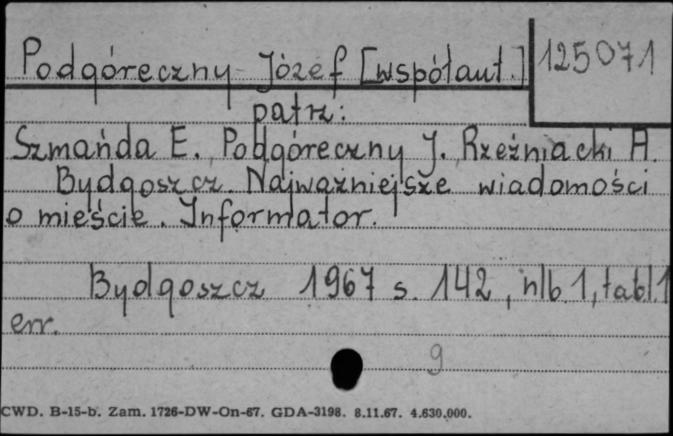 Podgóreczny Józef [współaut.]
125071
patrz:
Szmańda E. Podgóreczny J. Rzeźniacki A.
Bydgoszcz. Najważniejsze wiadomości
o mieście. Informator.
Bydgoszcz 1967 s. 142, nlb. 1, tabl. 1
err.
9
CWD. B-15-b. Zam. 1726-DW-On-67. GDA-3198. 8.11.67. 4.630.000.